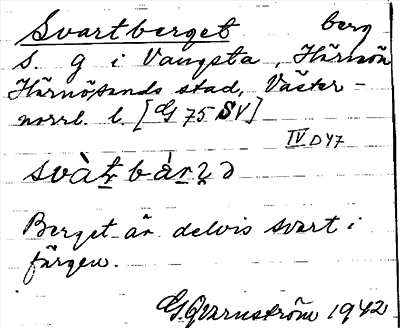 Svartberget berg
S. g i Vangsta, Härnön
Härnösands stad, Väster-
norrl. l. [G 75 SV]
IV D 47
svàt bár
Berget är delvis svart i
färgen.
G. Qvarnström 1942